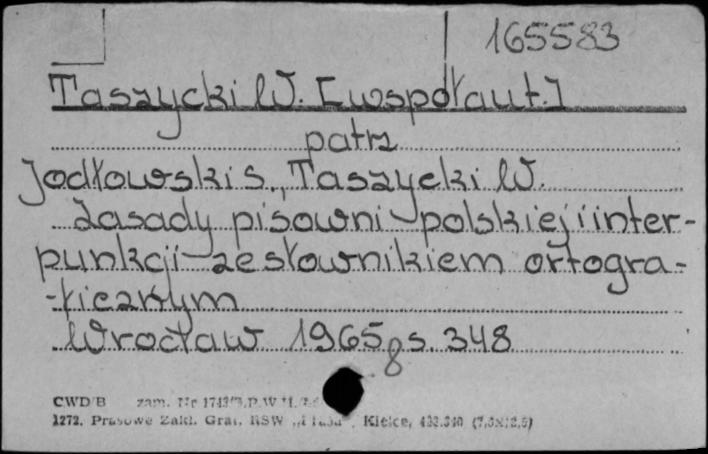 165583
Taszycki W. [współaut.]
patrz
Jodłowski S., Taszycki W.
Zasady pisowni polskiej i inter-
punkcji ze słownikiem ortogra-
-ficznym
Wrocław 1965 8 s. 348
CWD/B zam. Nr
1272. Prasowe Zakł. Graf. RSW „Prasa", Kielce,